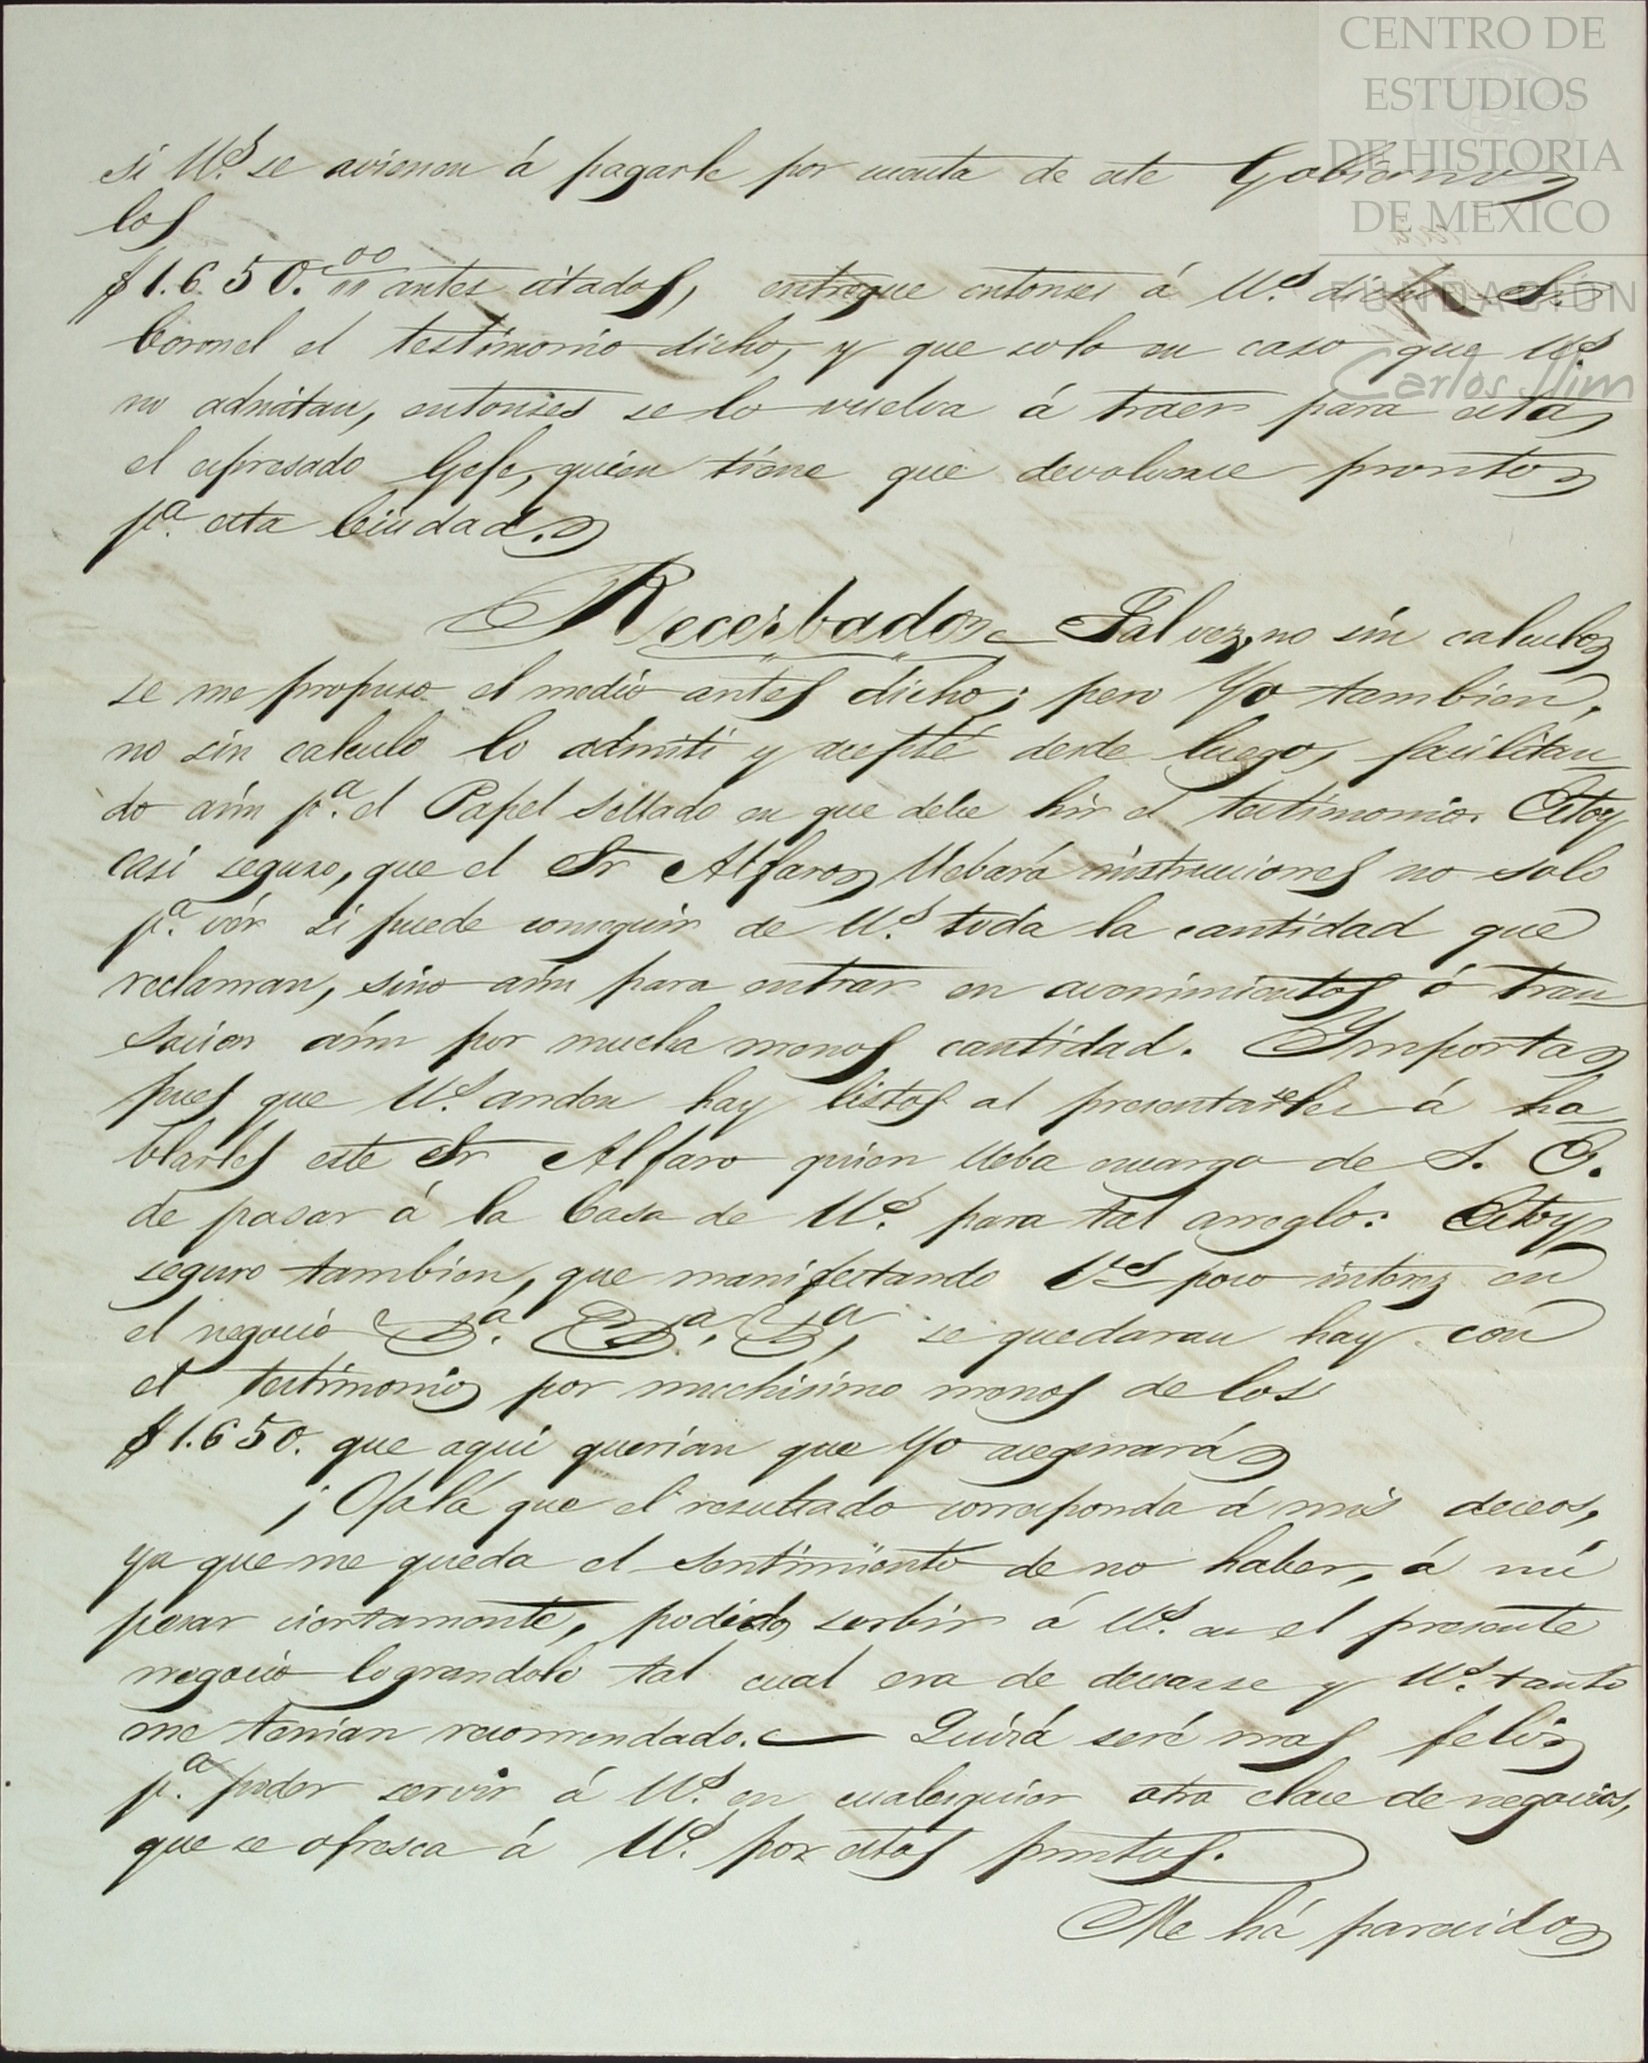 CENTRO DE
ESTUDIOS
DE HISTORIA
DE MEXICO
FUNDACIÓN
Carlos Slim
si U.s se avienen á pagarle por cuenta de este Gobierno
los
$1.650.00 antes citados, entregue entonses á U.s dicho Sr.
Coronel el testimonio dicho, y que solo en caso que U.s
no admitan, entonses se lo vuelva á traer para esta
el espresado Gefe, quien tiene que devolverse pronto
p.a esta Ciudad.
Recerbado Tal vez, no sin calculo
se me propuso el medio antes dicho; pero Yo tambien,
no sin calculo lo admiti y acepté desde luego, facilitan
do aún p.a el Papel Sellado en que debe hir el testimonio. Estoy
casi seguro, que el Sr Alfaro llebará instrucciones no solo
p.a vér si puede conseguir de U.s toda la cantidad que
reclaman, sino aún para entrar en avenimientos ó tran
sacion aún por mucha menos cantidad. Importa
pues que U.s anden hay listos al presentarseles á ha
blarles este Sr Alfaro quien lleba encargo de S. E.
de pasar á la Casa de U.s para tal arreglo: Estoy
seguro tambien, que manifestando Vs poco interez en
el negocio se quedaran hay con
el testimonio por muchisimo menos de los
$1.650. que aqui querian que Yo asegurará
¡Ojalá que el resultado corresponda á mis deceos,
ya que me queda el sentimiento de no haber, á mi
pesar ciertamente, podido serbir á U.s en el presente
negocio lograndolo tal cual era de decearse y U.s tanto
me tenian recomendado. Quizá seré mas feliz
p.a poder servir á U.s en cualesquier otra clace de negocios,
que se ofresca á U.s por estos puntos.
Me há parecido